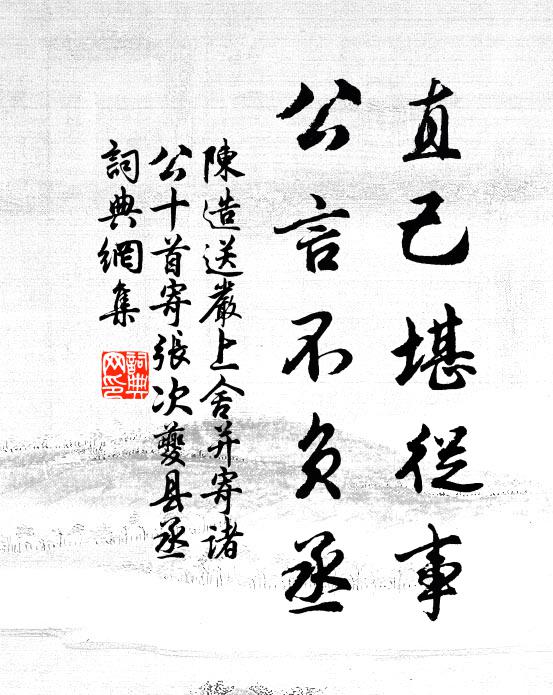 直己堪從事
公言不負丞
陳造送嚴上舍并寄諸
公十首寄張次夔县丞
詞典網集
詞典
网印